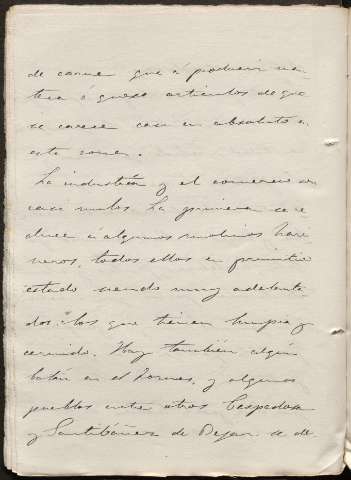 de carne que á producir man-
teca ó queso artículos de que
se carece casi en absoluto en
esta zona.
La industria y el comercio son
casi nulos. La primera se re
duce á algunos molinos hari
neros, todos ellos en primitivo
estado siendo muy adelanta
dos los que tienen limpia y
cernido. Hay también algún
batán en el Tormes, y algunos
pueblos entre otros Cespedosa
y Santibáñez de Bejar se de